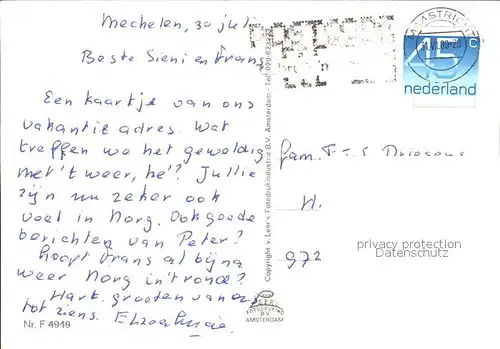 Mechelen, 30 jul.
Beste Sieni en Frans
Een kaartje van ons
vakantie adres. Wat
treffen we het geweldig
met 't weer, hè'? Jullie
zijn nu zeker ook
veel in Norg. Ook goede
berichten van Peter?
hoopt Frans al bijna
weer Norg in 't rond?
Hart. groeten van ons
tot ziens.
Nr. F 4949
Copyright v. Leer's Fotodrukindustrie B.V. Amsterdam - Tel.
MAASTRICHT
45 c
nederland
Fam.
N.
972
privacy protection
Datenschutz
LEER'S
FOTODRUKIND
B.V.
AMSTERDAM